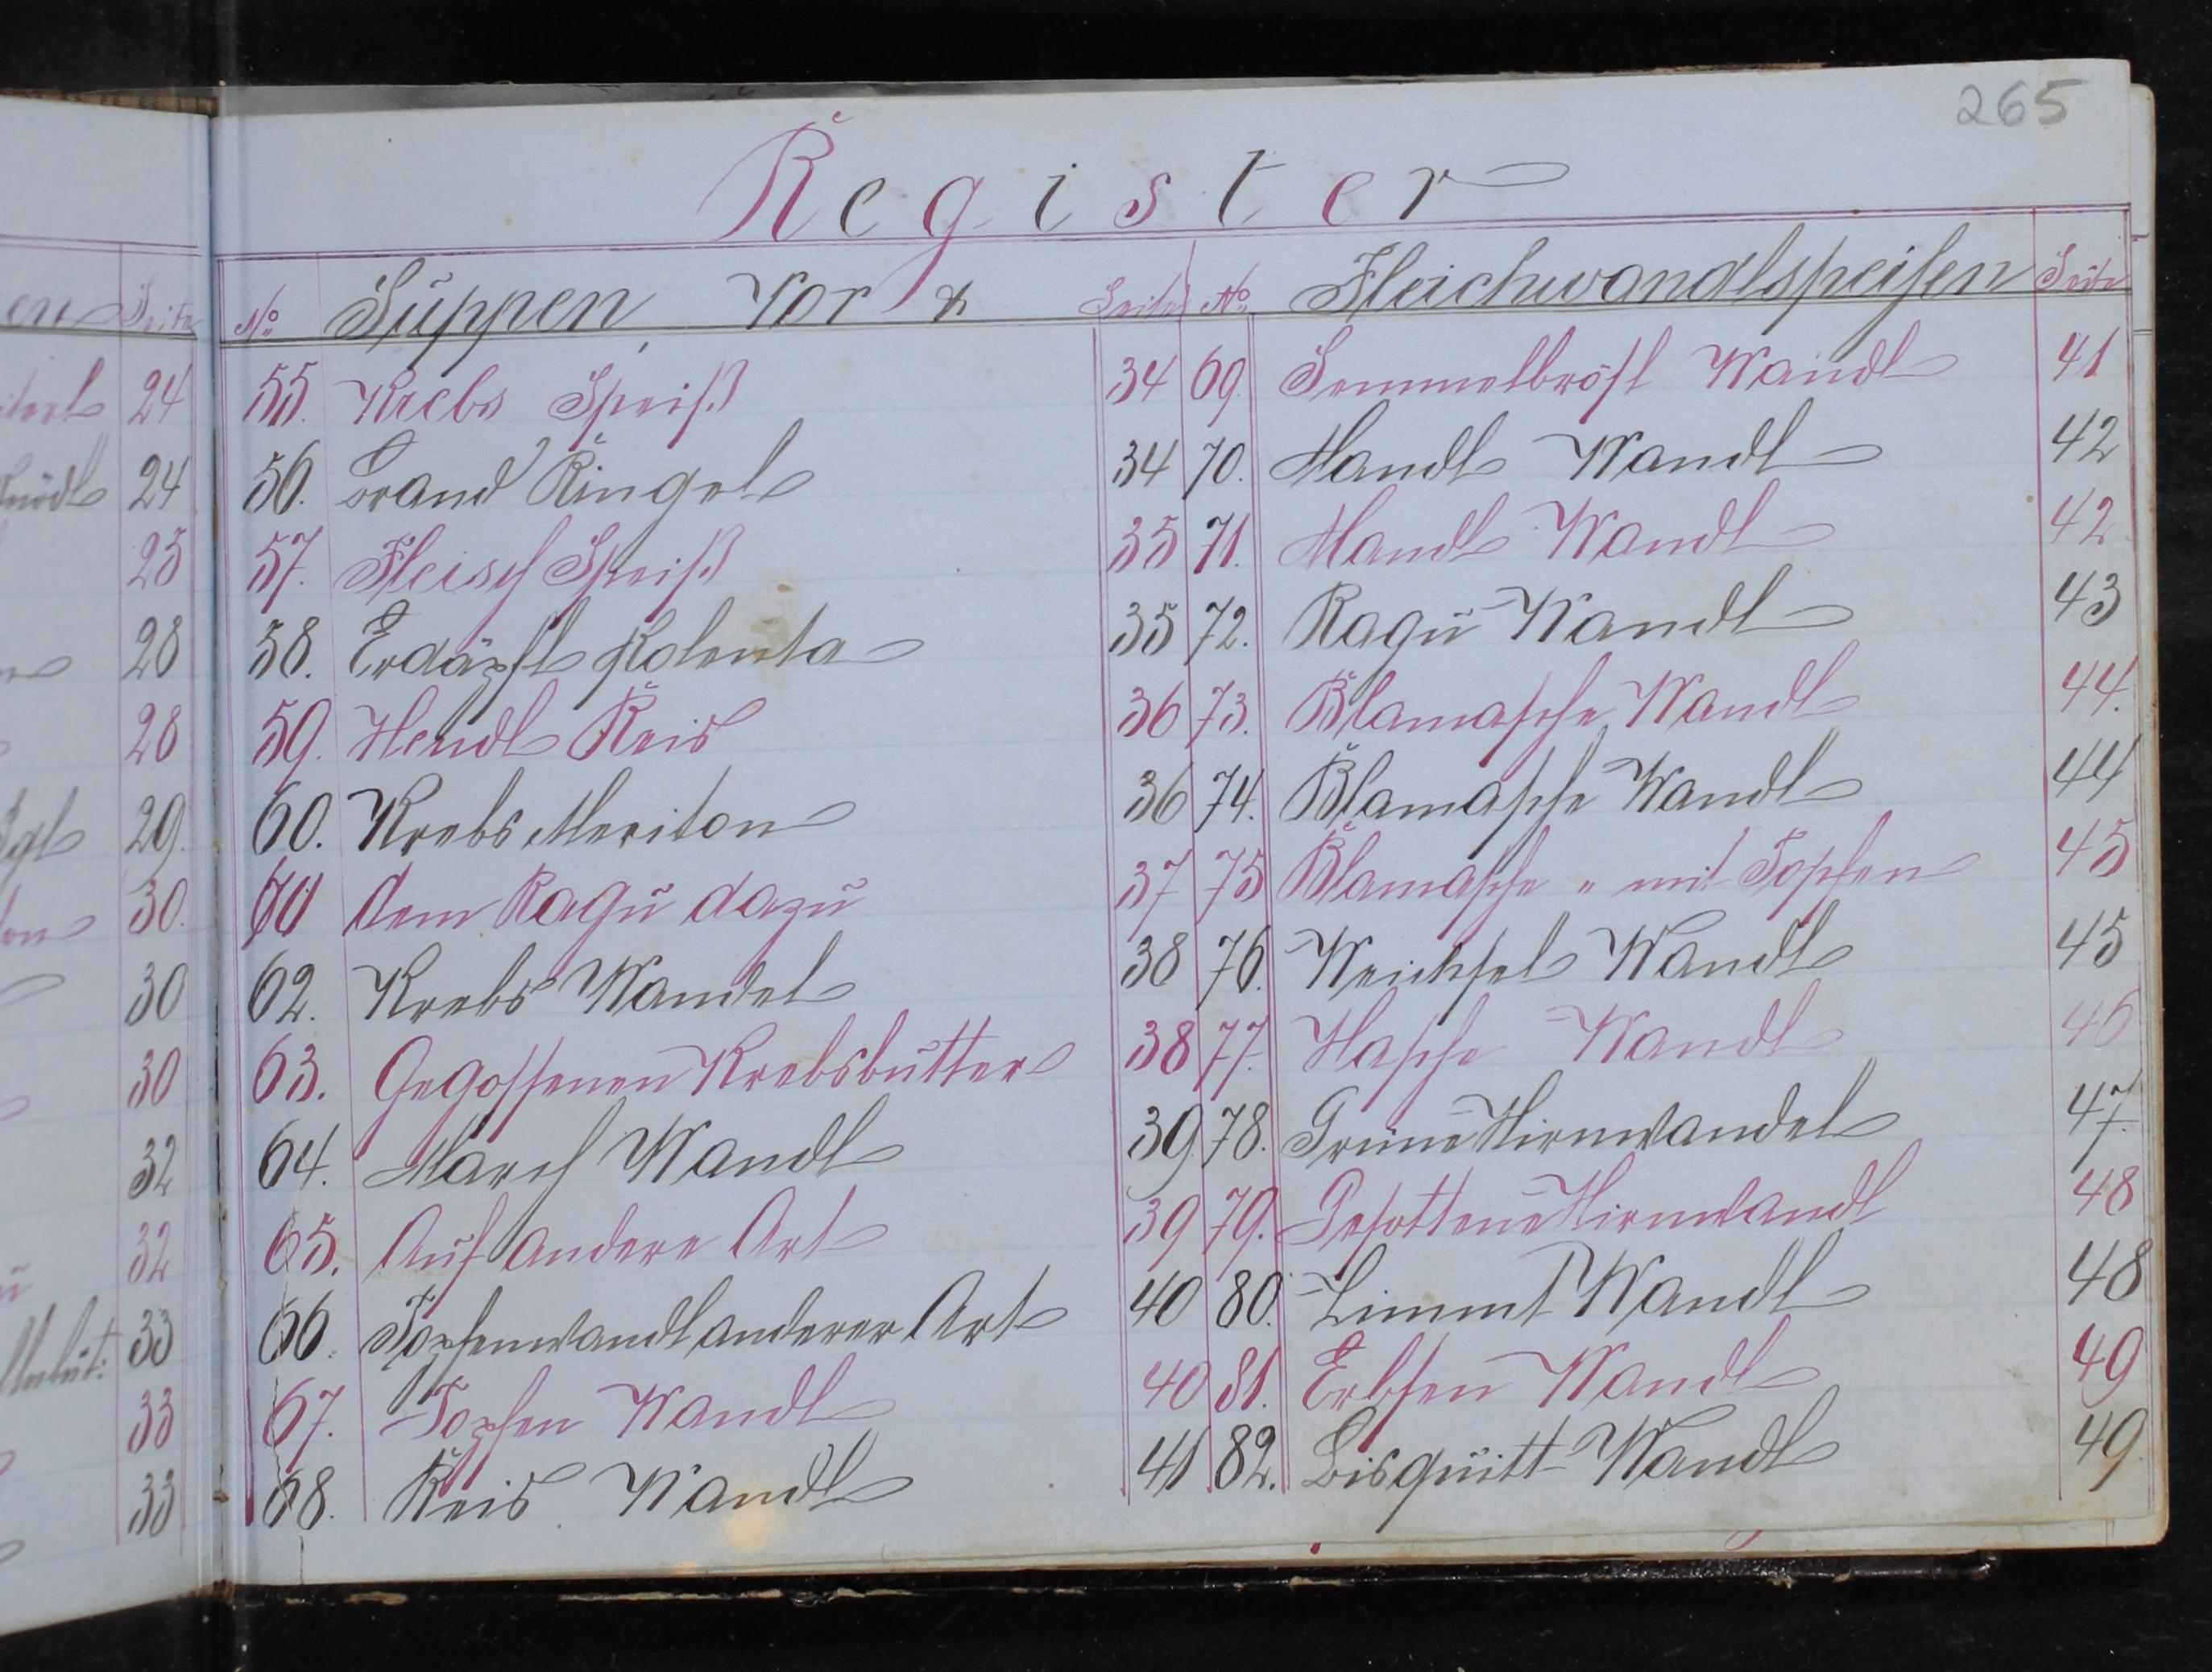 265
Register
Seite No Suppen, Vor & Seite No Fleichwandlspeisen Seite
24 55. Krebs Speiß 34 69. Semmelbrösl Wandl 41
24 56. Brand Ringel 34 70. Mandl Wandl 42
25 57. Fleisch Speiß 35 71. Mandl Wandl 42
28 58. Erdäpfl Polenta 35 72. Ragū Wandl 43
28 59. Hendl Reis 36 73. Blamasche Wandl 44.
29. 60. Krebs Meriton 36 74. Blamasche Wandl 44
30. 61 dem Ragū dazū 37 75 Blamasche „ mit Topfen 45
30 62. Krebs Wandel 38 76. Weichsel Wandl 45
30 63. Gegossenen Krebsbūtter 38 77. Hasche Wandl 46
32 64. March Wandl 39. 78. Grüne Hirnwandel 47.
32 65. Aūf andere Art 39 79. Gesottene Hirnwandl 48
33 66. Topfenwandl anderer Art 40 80. Zimmt Wandl 48
33 67. Topfen Wandl 40 81. Erbsen Wandl 49
33 68. Reis Wandl 41 82. Bisqūitt Wandl 49.